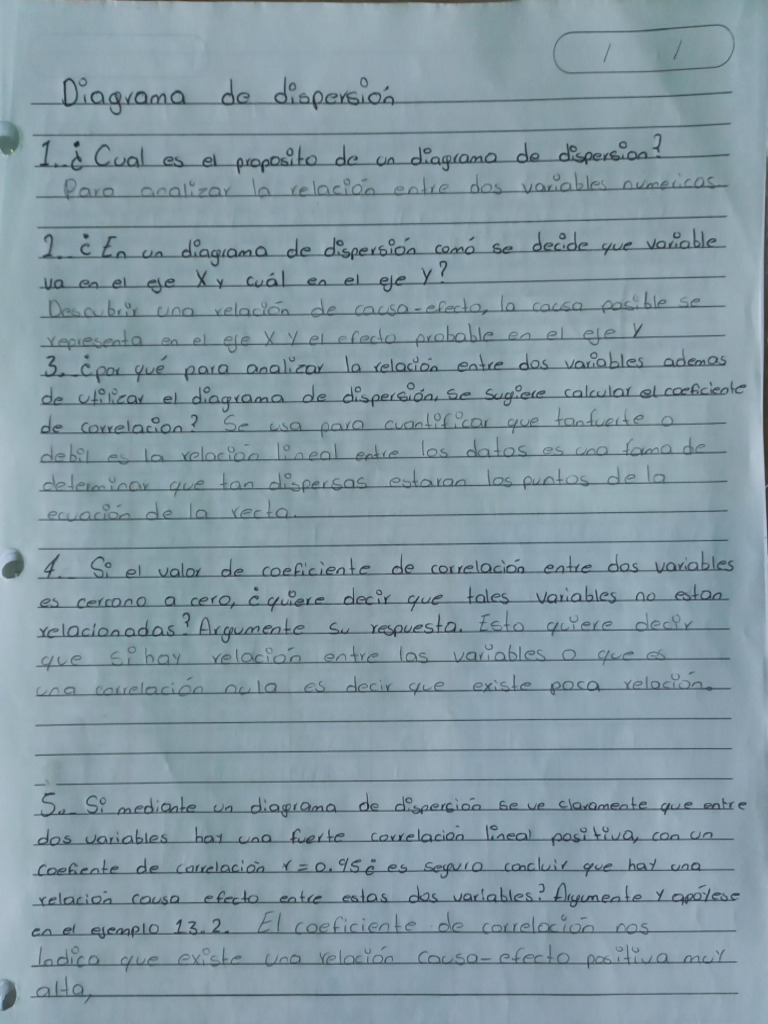 / /
Diagrama de dispersión
1. ¿Cual es el proposito de un diagrama de dispersion?
Para analizar la relación entre dos variables numericas
2. ¿En un diagrama de dispersión comó se decide que variable
va en el eje X y cuál en el eje Y?
Descubrir una relación de causa-efecto, la causa posible se
representa en el eje X y el efecto probable en el eje Y
3. ¿por qué para analizar la relación entre dos variables ademas
de utilizar el diagrama de dispersión, se sugiere calcular el coeficiente
de correlacion? Se usa para cuantificar que tanfuerte o
debil es la relación lineal entre los datos es una forma de
determinar que tan dispersas estaran los puntos de la
ecuación de la recta.
4. Si el valor de coeficiente de correlación entre dos variables
es cercano a cero, ¿quiere decir que tales variables no estan
relacionadas? Argumente su respuesta. Esto quiere decir
que si hay relación entre las variables o que es
una correlación nula es decir que existe poca relación.
5. Si mediante un diagrama de disperción se ve claramente que entre
dos variables hay una fuerte correlación lineal positiva, con un
coefiente de correlación r = 0.95¿ es seguro concluir que hay una
relación causa efecto entre estas dos variables? Argumente y apóyese
en el ejemplo 13.2. El coeficiente de correlación nos
Indica que existe una relación causa-efecto positiva muy
alta,